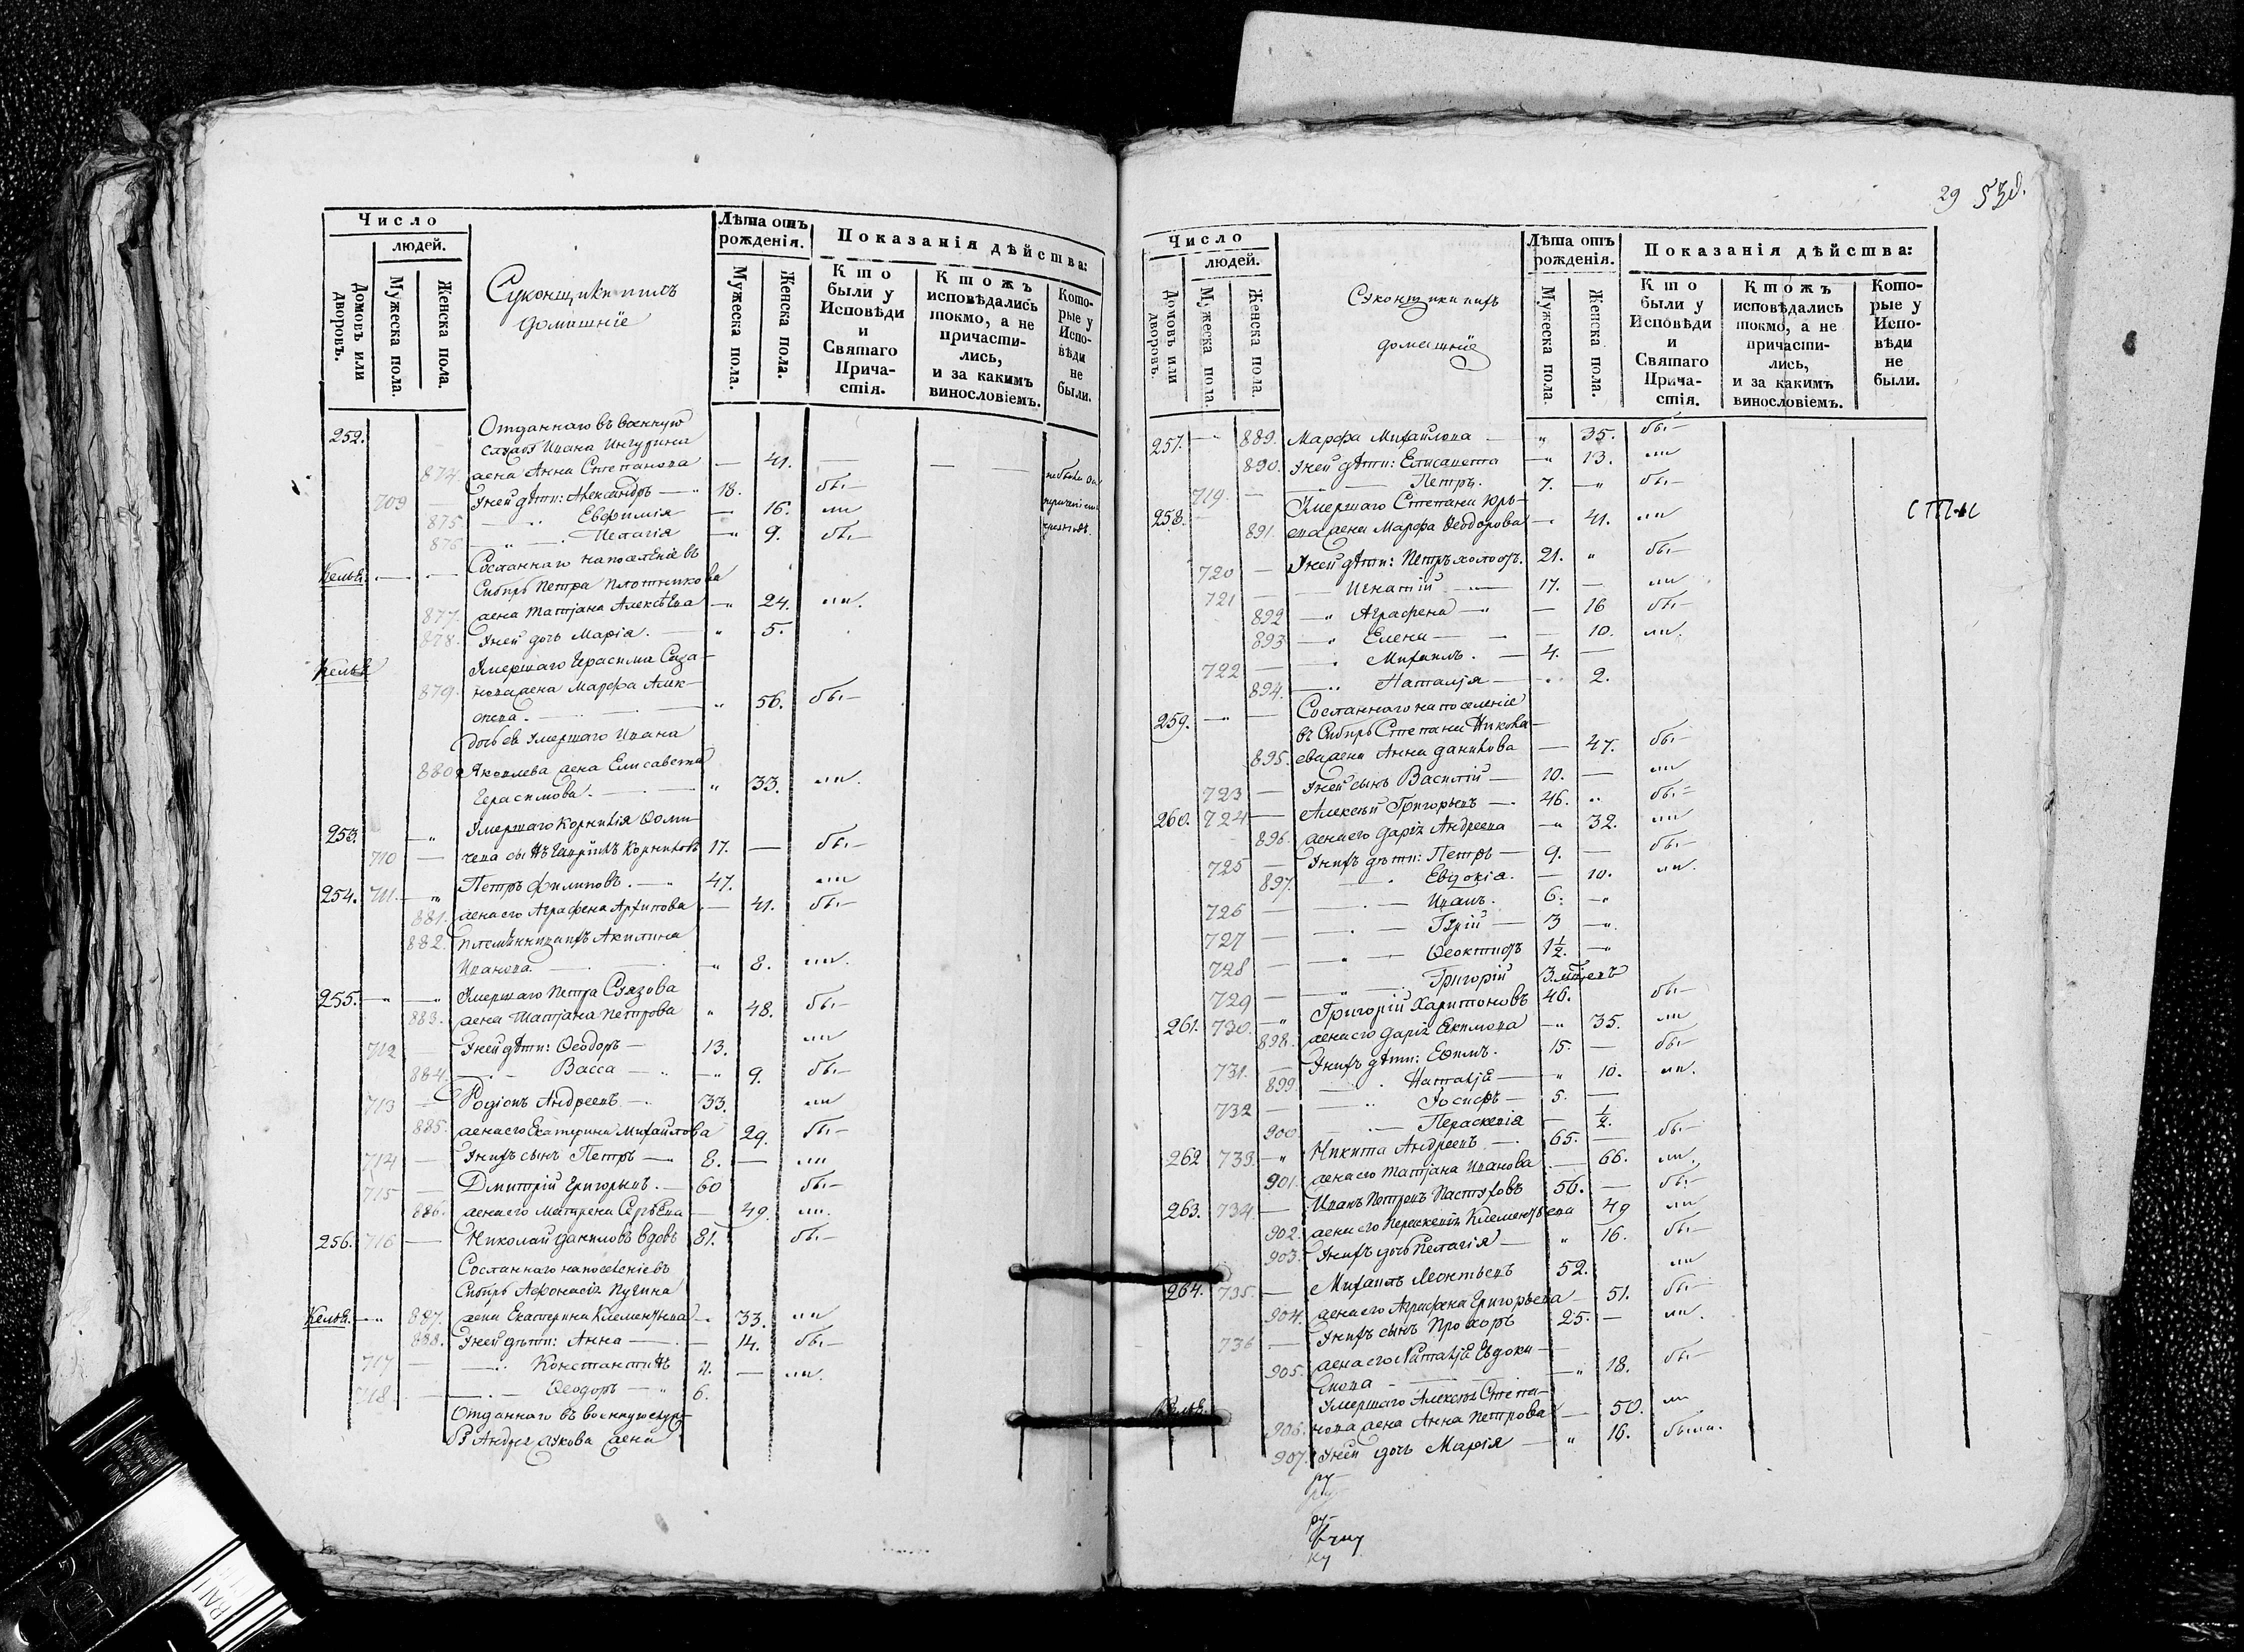 Число
людей.
Домовъ или дворовъ.
Мужеска пола.
Женска пола.
Суконщики и ихъ
домашніе
Лѣта отъ рожденія.
Мужеска пола.
Женска пола.
Показанія дѣйства:
Кто были у Исповѣди и Святаго Причастія.
Ктожъ исповѣдались токмо, а не причастились, и за какимъ винословіемъ.
Которые у Исповѣди не были.
252. Отданнаго въ военную
службу Ивана
874. жена Анна Степанова — 41. —
709 У ней дѣти: Александръ — 18. бы —
875. Евфимія — 16. ли
876. Пелагія — 9. бы —
Келья. Сосланнаго на поселеніе въ
Сибирь Петра Плотникова
877. жена Татіана Алексѣева — 24. ли.
878. У ней дочь Марія. — 5.
Келья Умершаго Герасима
879. жена Марфа
56. бы —
дочь ея умершаго Ивана
880. Яковлева жена Елисавета
Герасимова. — 33. ли.
253. Умершаго Корнилія Ѳоми-
710 чева сынъ Гавріилъ Корниловъ 17. — бы —
254. 711. Петръ Филиповъ. — 47. ли
881. жена его Аграфена Архипова — 41. бы —
882. племянница ихъ Акилина
Иванова. — 8. ли.
255. Умершаго Петра
883. жена Татіана Петрова 48. бы —
712 У ней дѣти: Ѳеодоръ — 13. ли
884. Васса — 9. бы —
713 Родіонъ Андреевъ — 33. ли
885. жена его Екатерина Михайлова 29. бы —
714 У нихъ сынъ Петръ — 8. — ли
715 Дмитрій Григорьевъ. — 60 бы —
886. жена его Матрена Сергѣева — 49. ли.
256. 716 Николай Даниловъ вдовъ 81. бы —
Сосланнаго на поселеніе въ
Сибирь Афонасія Пугина
Келья. 887. жена Екатерина Климентьева — 33. ли
888. У ней дѣти: Анна — 14. бы —
717 Константинъ — ли.
718 Ѳеодоръ — 6.
Отданнаго въ военную служ-
бу жена
29 530.
Число
людей.
Домовъ или дворовъ.
Мужеска пола.
Женска пола.
Суконщики и ихъ
домашніе
Лѣта отъ рожденія.
Мужеска пола.
Женска пола.
Показанія дѣйства:
Кто были у Исповѣди и Святаго Причастія.
Ктожъ исповѣдались токмо, а не причастились, и за какимъ винословіемъ.
Которые у Исповѣди не были.
257. 889. Марфа Михайлова — 35. бы —
890. У ней дѣти: Елисавета — 13. ли
719. Петръ. 7. бы —
258. Умершаго Степана Юрь-
891. ева жена Марфа Ѳеодорова — 41. ли
720 У ней дѣти: Петръ холостъ. 21. бы —
721 Игнатій — 17. — ли
892 Аграфена — 16 бы —
893 Елена — 10. ли.
722 Михаилъ. — 4. —
894. Наталія — 2.
259. Сосланнаго на поселеніе
въ Сибирь Степана
895. жена Анна Данилова — 47. бы —
723 У ней сынъ Василій — 10. — ли
260. 724 Алексѣй Григорьевъ — 46. бы —
896. жена его Дарія Андреева — 32. ли
725 У нихъ дѣти: Петръ — 9. — бы —
897. Евдокіа. — 10. ли.
726 Иванъ. 6.
727 Гурій — 3
728 Ѳеоктистъ 1½.
729 Григорій 3.
261. 730. Григорій Харитоновъ 46. бы —
898. жена его Дарія Екимова — 35. ли
731. У нихъ дѣти: Ефимъ. 15. — бы —
899 Наталія — 10. ли.
732 Іосифъ — 5. —
900 Параскевія — ½.
262 733. Никита Андреевъ — 65. — бы —
901. жена его Татіана Иванова — 66. ли.
263. 734. Иванъ Петровъ Пастуховъ 56. — бы —
902. жена его Параскевія Клементьева 49 ли
903. У нихъ дочь Пелагія — 16. бы —
264. 735. Михаилъ Леонтьевъ 52. ли
904. жена его Аграфена Григорьева — 51. бы —
736 У нихъ сынъ Прохоръ 25. — ли.
905. жена его Наталія Евдоки-
мова — 18. бы —
Келья. Умершаго Алексѣя Степа-
906. нова жена Анна Петрова — 50. ли
907. У ней дочь Марія — 16. были.